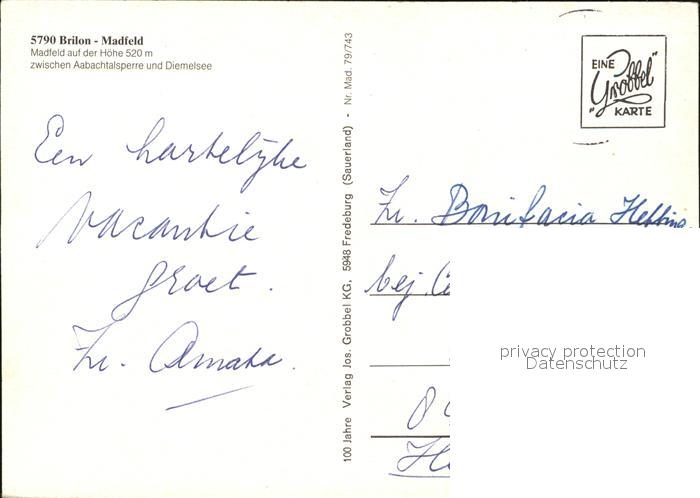 5790 Brilon - Madfeld
Madfeld auf der Höhe 520 m
zwischen Aabachtalsperre und Diemelsee
Een hartelijke
vacantie
groet.
Zr. Amata.
100 Jahre Verlag Jos. Grobbel KG, 5948 Fredeburg (Sauerland) - Nr. Mad. 79/743
EINE
"Grobbel"
KARTE
Zr. Bonifacia
bej.
privacy protection
Datenschutz
8